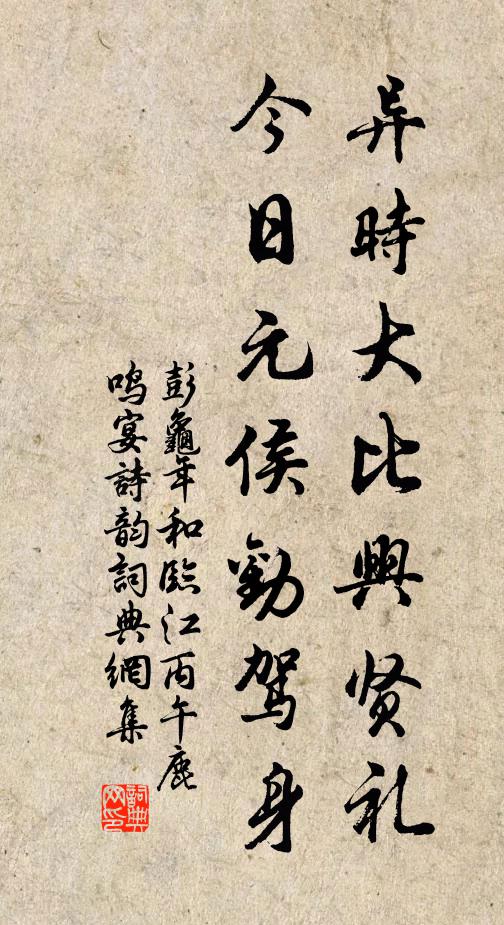 异時大比興贤礼
今日元侯勸駕身
彭龜年和臨江丙午鹿
鳴宴詩韵詞典網集
詞典
网印